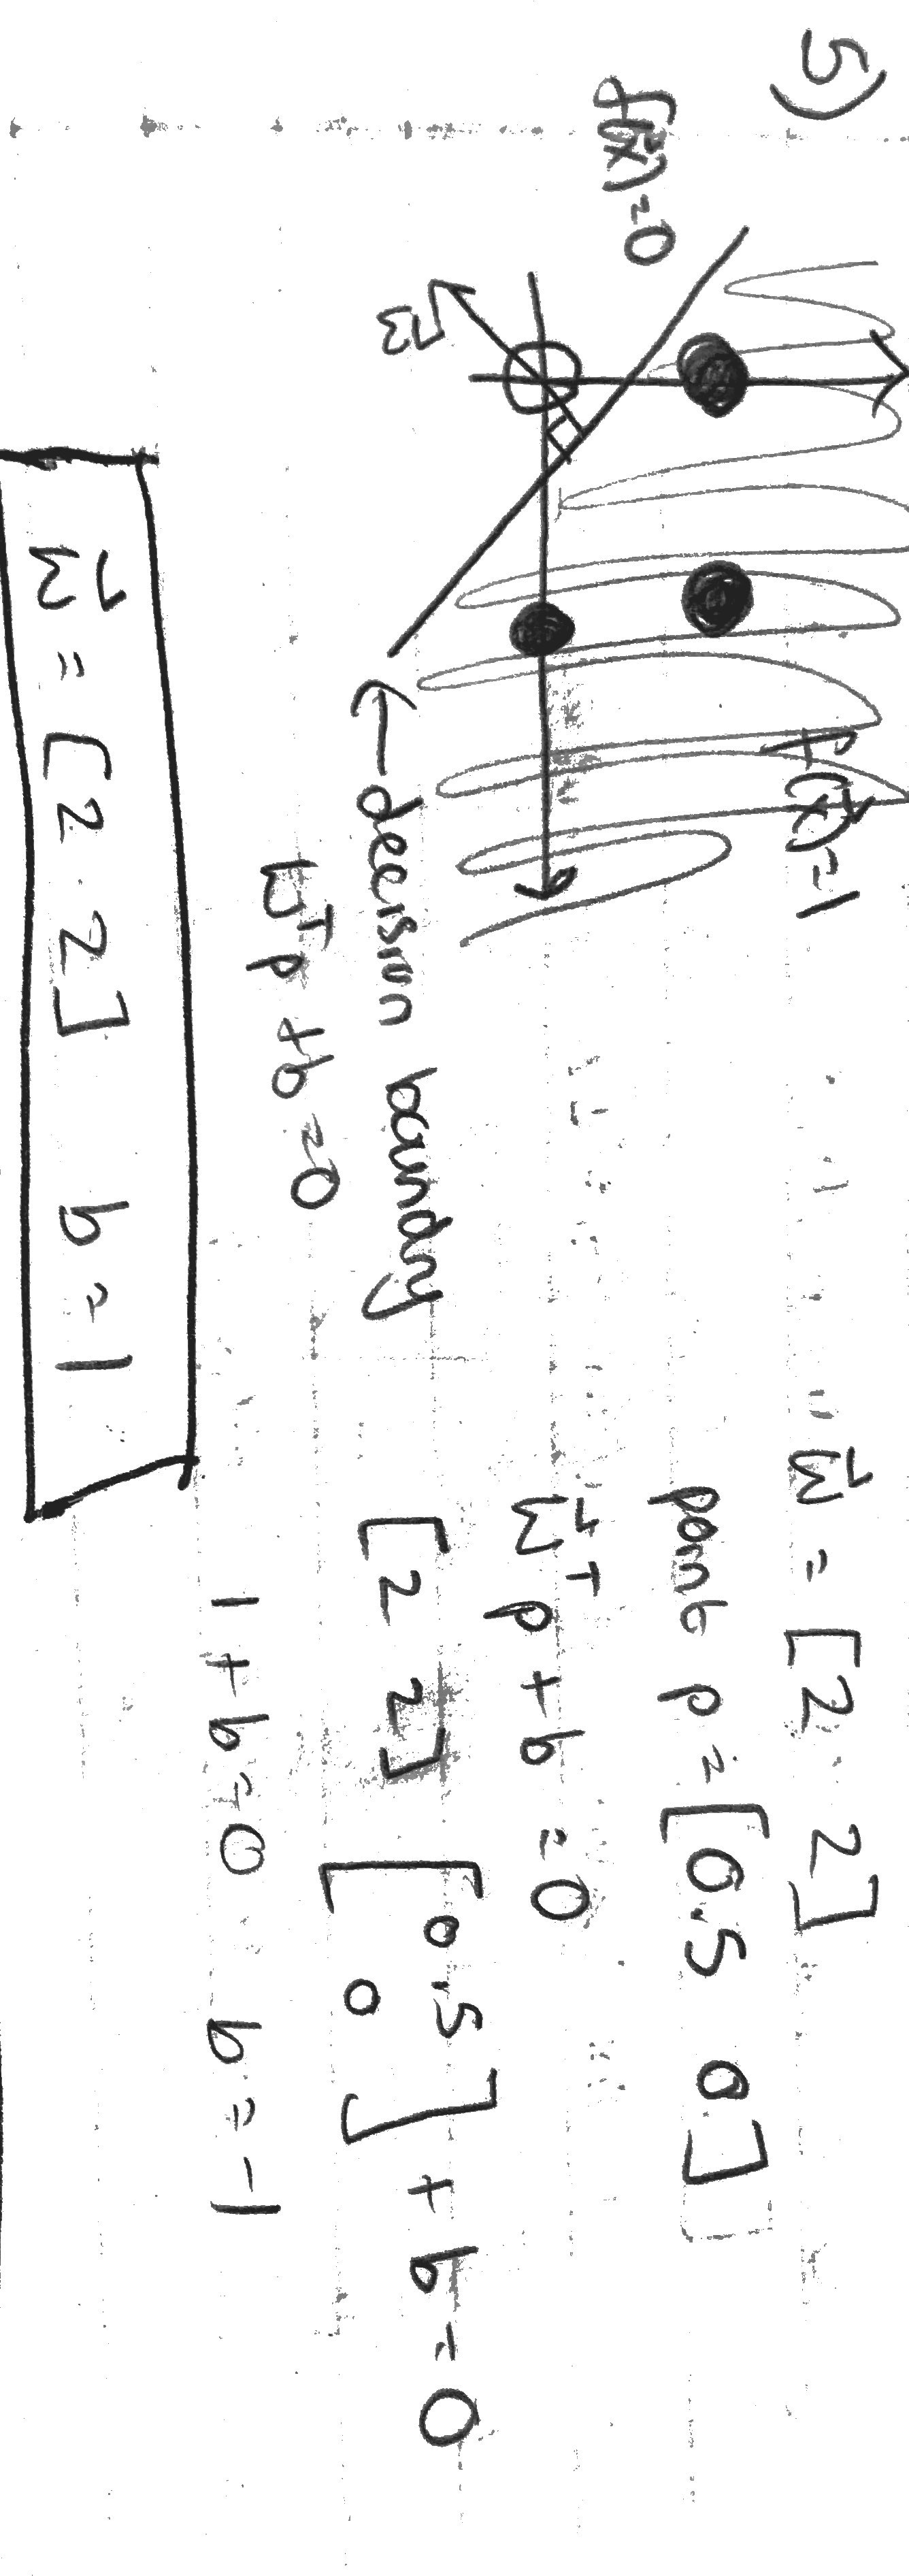 5)
f(x⃗)=0
f(x⃗)=1
w⃗
← decision boundry
w⃗ᵀp + b = 0
w⃗ = [2 2]
point p = [0.5 0]
w⃗ᵀp + b = 0
[2 2] [0.5
0] + b = 0
1 + b = 0 b = -1
w⃗ = [2 2] b = 1